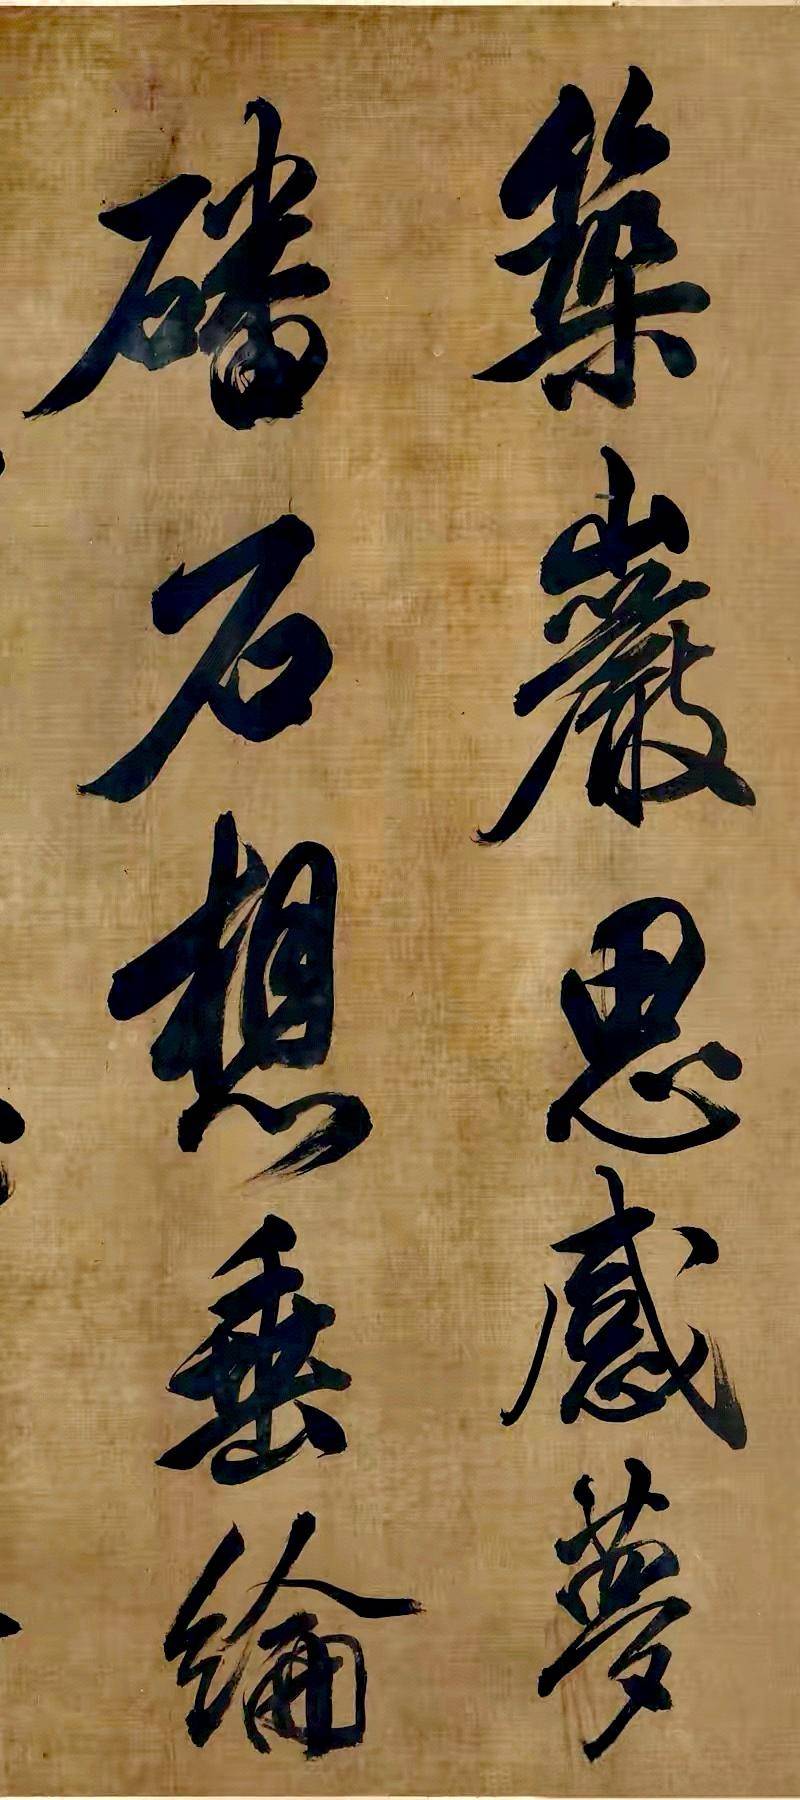 築巖思感夢
磻石想垂綸